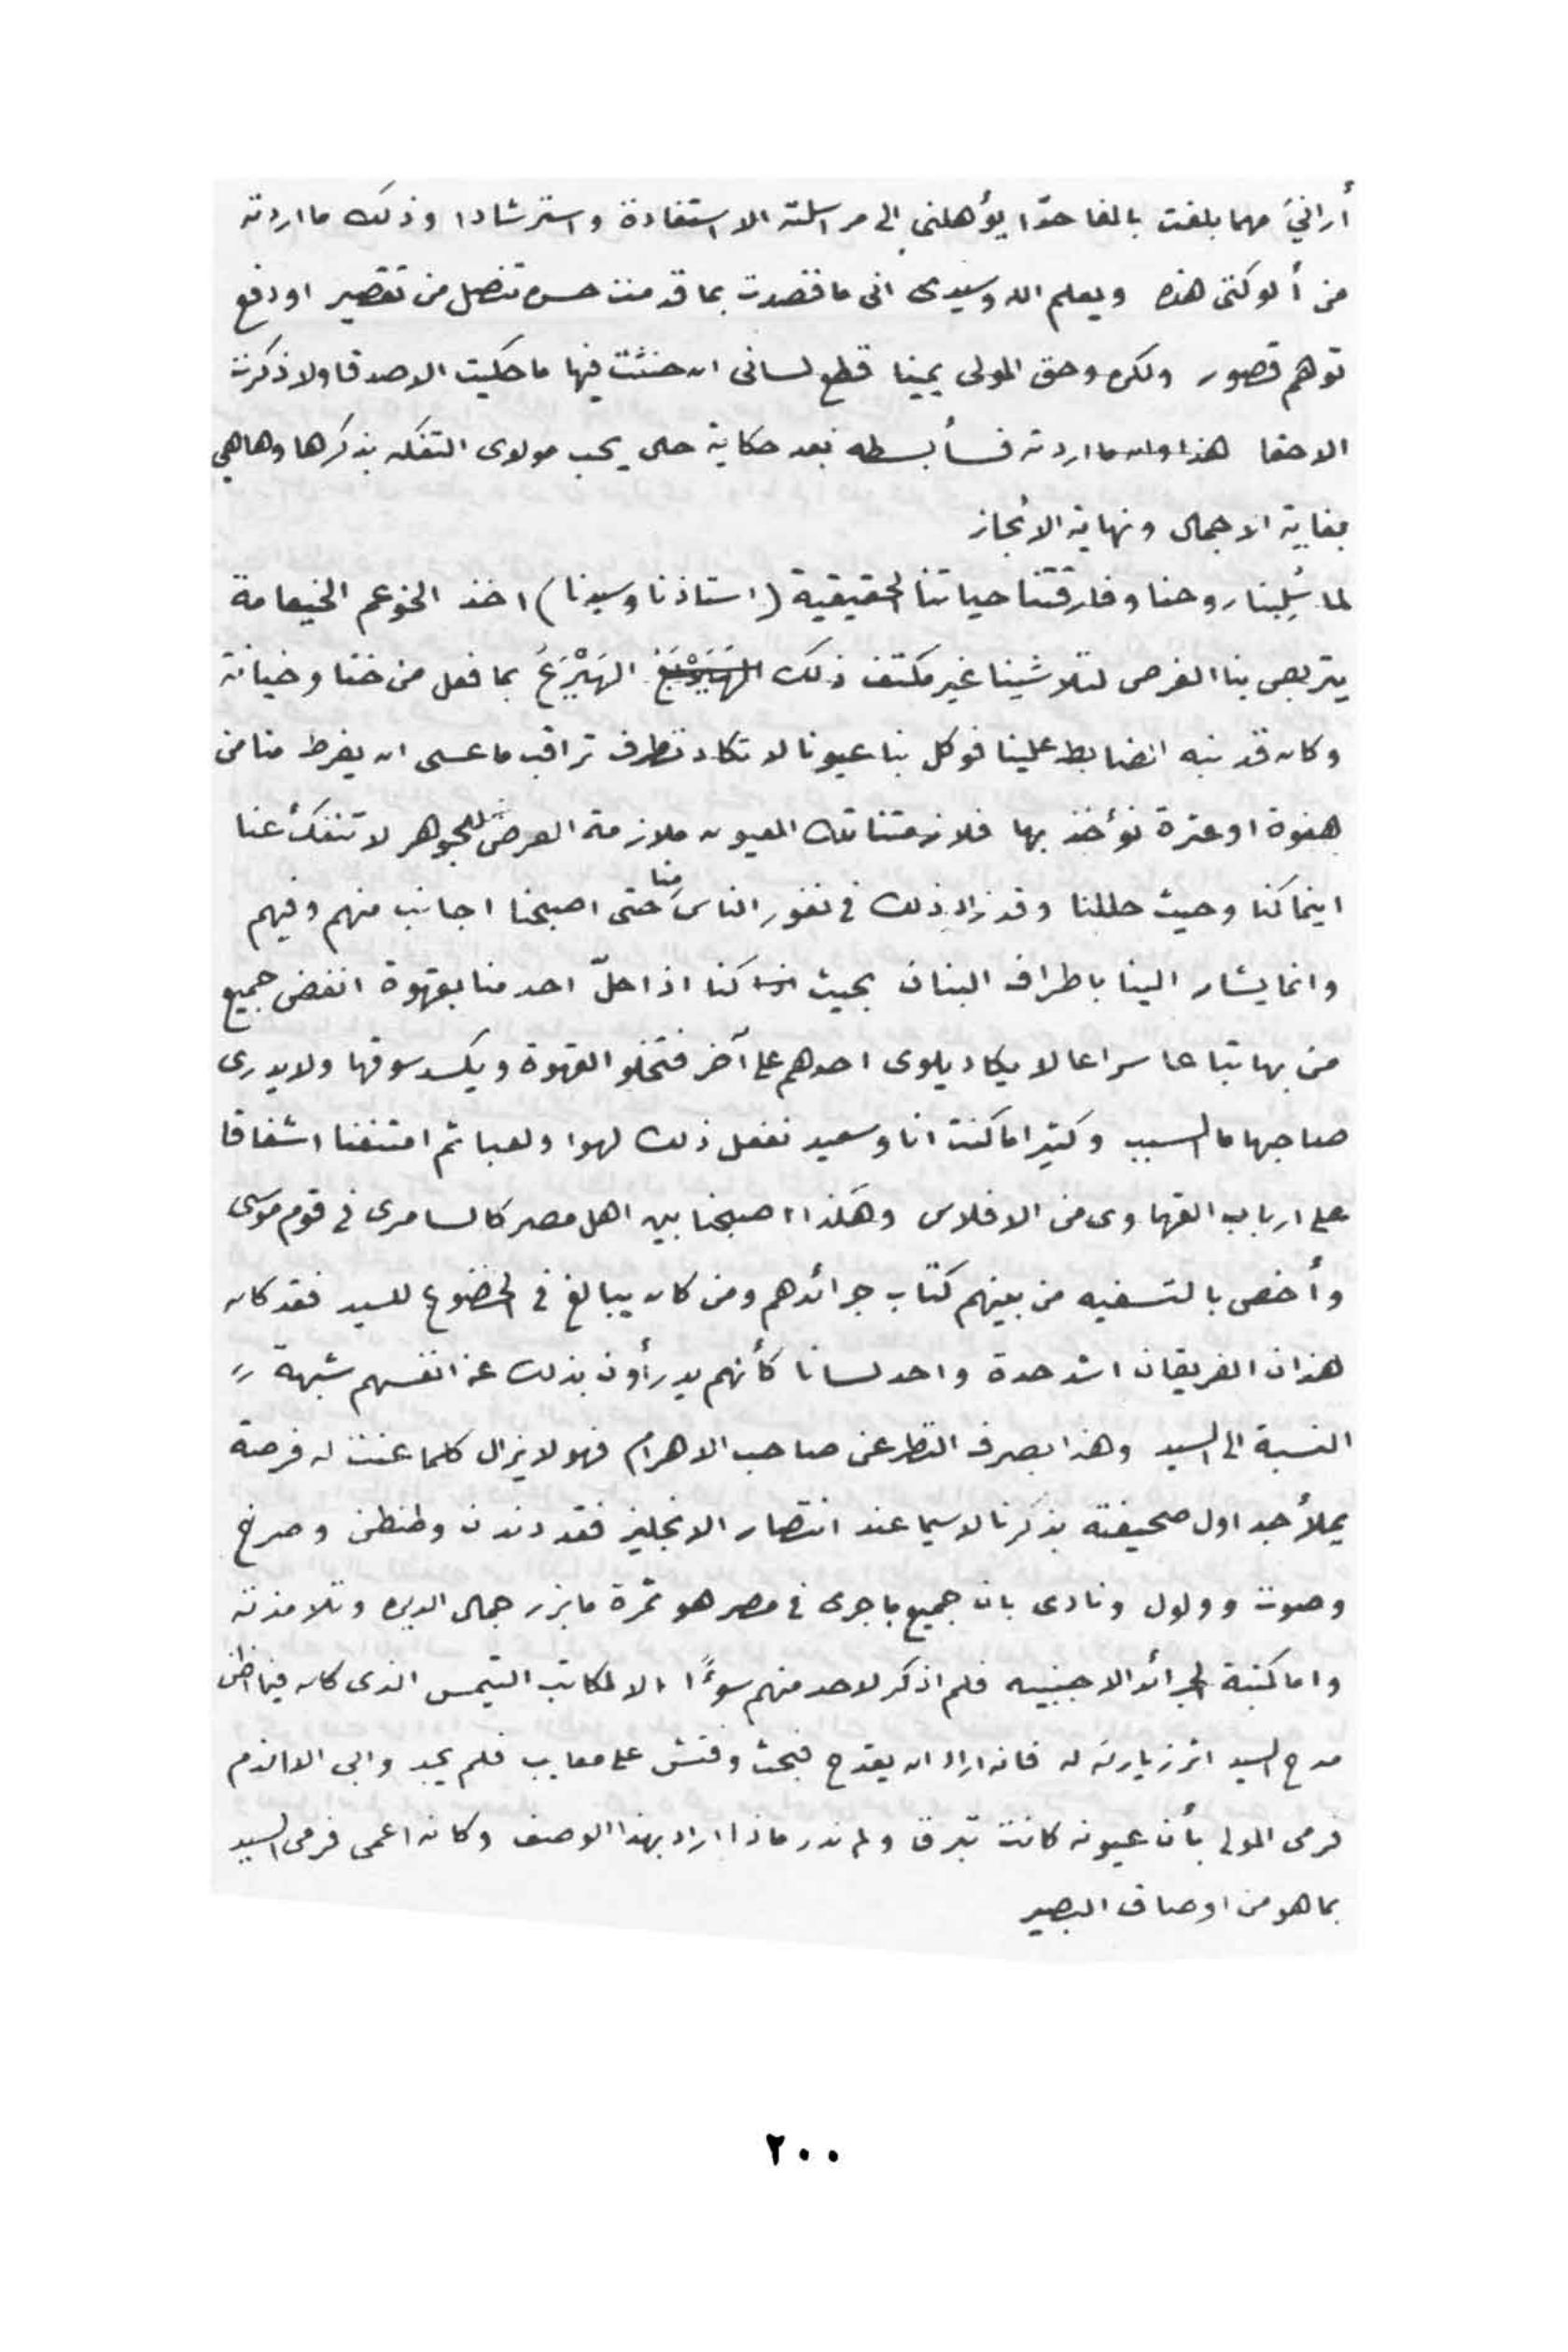 أرانيَ مهما بلغت بالغا حدّا يؤهلنى الى مراسلته الا استفادة واسترشادا وذلك ما اردته
من ألوكتى هذه ويعلم الله وسيدى انى ما قصدت بما قدمت حسن تنصل من تقصير او دفع
توهم قصور ولكن وحق المولى يمينا قطع لسانى ان حنثت فيها ما حكيت الا صدقا ولا ذكرت
الا حقا هذا وان ما اردته فسأبسطه بعد حكاية حال يحب مولاى التفكه بذكرها وها هى
بغاية الاجمال ونهاية الانجاز
لما سُلِبنا روحنا وفارقتنا حياتنا الحقيقية (استاذنا وسيدنا) اخذ الخوعم الخيعامة
يتربص بنا الفرص لتلاشينا غير مكتف ذلك الهَيْزَعُ بما فعل من ختا وخيانة
وكان قد نبه الضابط علينا فوكل بنا عيونا لا تكاد تطرف تراقب ما عسى ان يفرط منا من
هفوة او عثرة نؤخذ بها فلازمتنا تلك العيون ملازمة العرض للجوهر لا تنفكّ عنا
اينما كنا وحيث حللنا وقد زاد ذلك فى نفور الناس منا حتى اصبحنا اجانب منهم وفيهم
وانما يشار الينا باطراف البنان بحيث كنا اذا حلّ احد منا بقهوة انفض جميع
من بها تباعا سراعا لا يكاد يلوى احدهم على آخر فتخلو القهوة ويكسد سوقها ولا يدرى
صاحبها ما السبب وكثيرا ما كنت انا وسعيد نفعل ذلك لهوا ولعبا ثم امتنعنا اشفاقا
على ارباب القهاوى من الافلاس وهكذا اصبحنا بين اهل مصر كالسامرى فى قوم موسى
وأخص بالتسفيه من بينهم كتّاب جرائدهم ومن كان يبالغ فى الخضوع للسيد فقد كان
هذان الفريقان اشد حدة واحد لسانا كأنهم يدرأون بذلك عن انفسهم شبهة
النسبة الى السيد وهذا بصرف النظر عن صاحب الاهرام فهو لا يزال كلما عنت له فرصة
يملأ جداول صحيفته بذكرنا لا سيما عند انتصار الانجليز فقد دندن وطنطن وصرخ
وصوت وولول ونادى بان جميع ما جرى فى مصر هو ثمرة ما بزر جمال الدين وتلامذته
واما كتبة الجرائد الاجنبيه فلم اذكر لاحد منهم سوءًا الا لمكاتب التيمس الذى كان فيما اظن
مدح السيد اثر زيارته له فانه اراد ان يقدح فبحث وفتش على معايب فلم يجد وابى الا الذم
فرمى المولى بأن عيونه كانت تبرق ولم ندر ماذا اراد بهذا الوصف وكانه اعمى فرمى السيد
بما هو من اوصاف البصير
٢٠٠